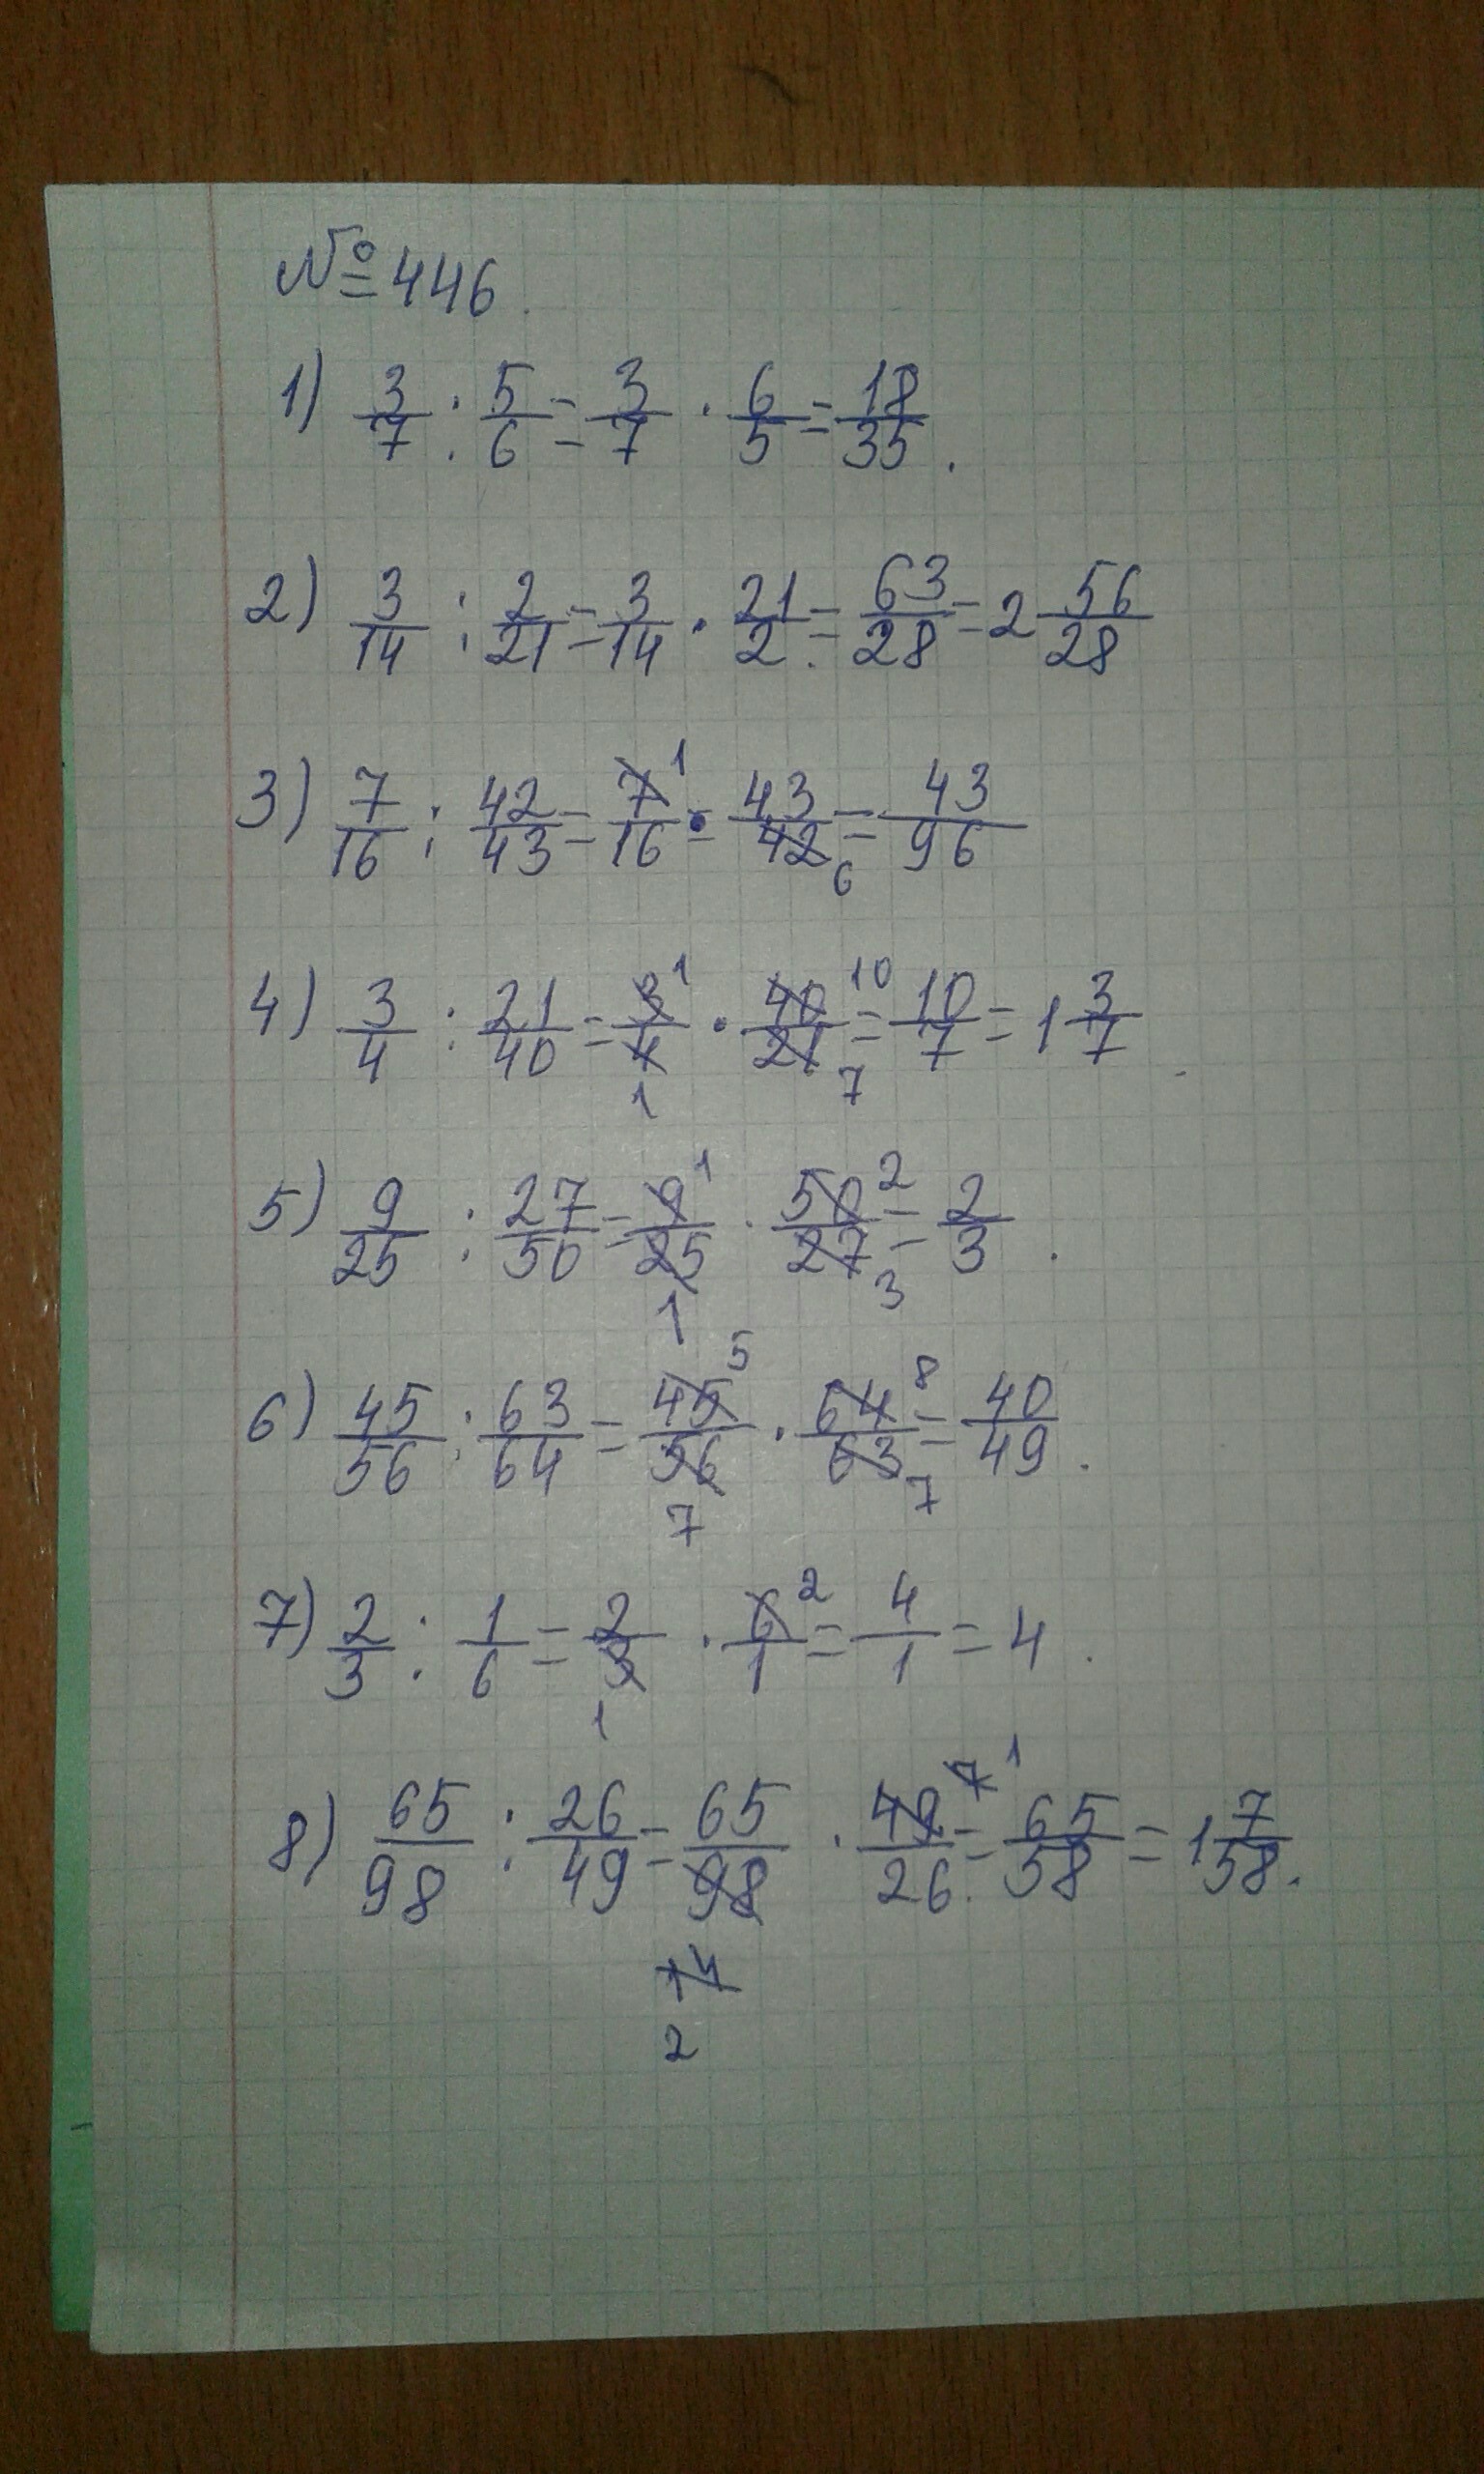 №446.
1) 3/7 : 5/6 = 3/7 · 6/5 = 18/35.
2) 3/14 : 2/21 = 3/14 · 21/2 = 63/28 = 2 56/28
3) 7/16 : 42/43 = 7 1/16 · 43/42 6 = 43/96
4) 3/4 : 21/40 = 3 1/4 1 · 40 10/21 7 = 10/7 = 1 3/7.
5) 9/25 : 27/50 = 9 1/25 1 · 50 2/27 3 = 2/3.
6) 45/56 : 63/64 = 45 5/56 7 · 64 8/63 7 = 40/49.
7) 2/3 : 1/6 = 2/3 1 · 6 2/1 = 4/1 = 4.
8) 65/98 : 26/49 = 65/98 14 2 · 49 7 1/26 = 65/58 = 1 7/58.